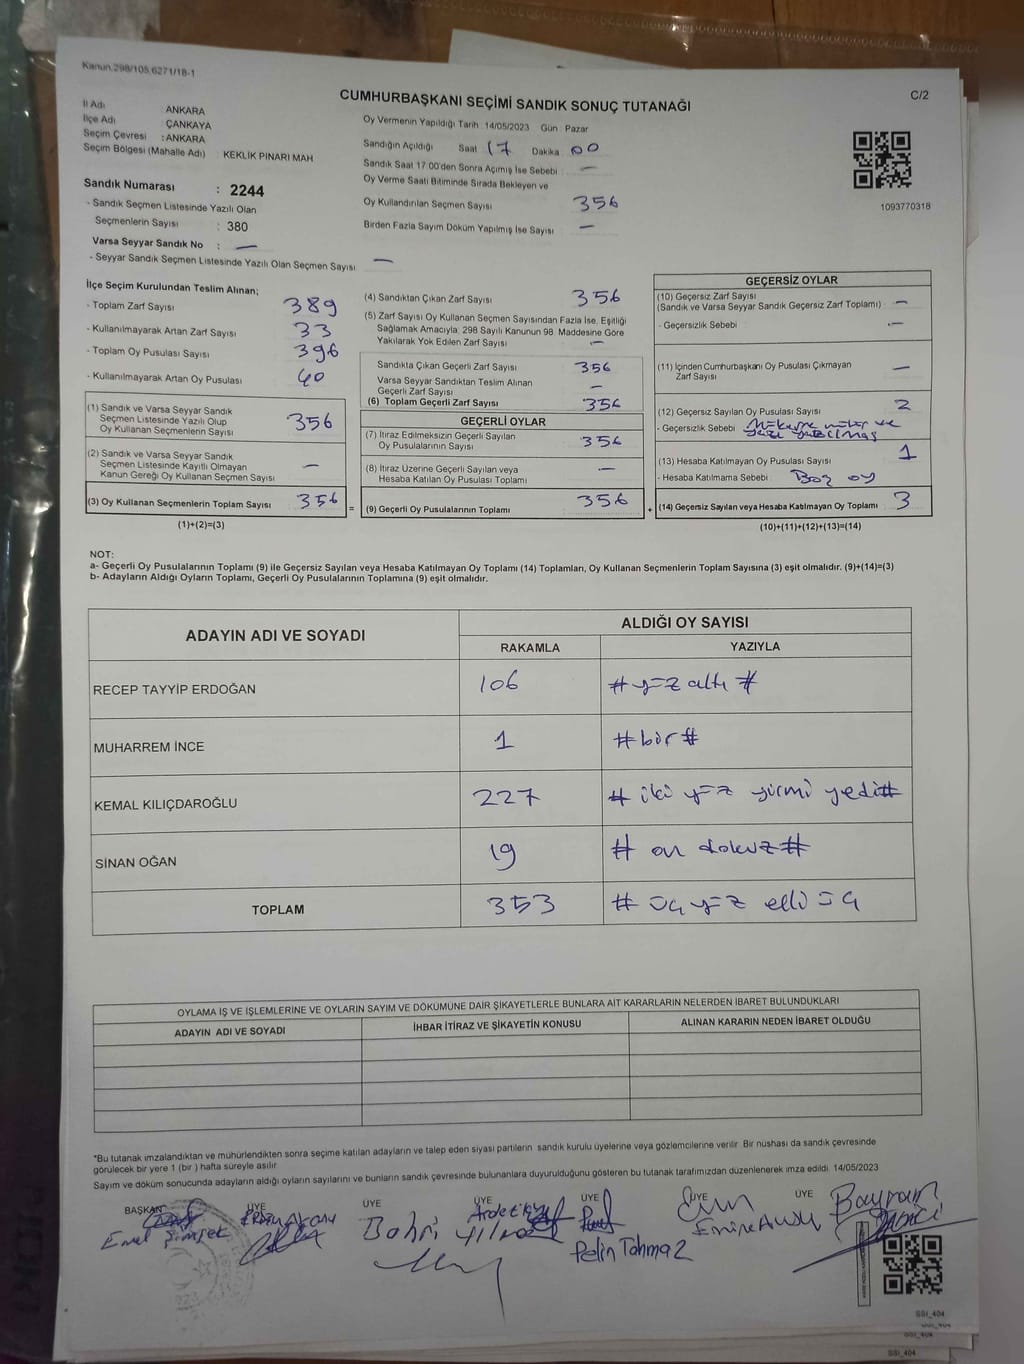 Kanun,298/105,6271/18-1
C/2
CUMHURBAŞKANI SEÇİMİ SANDIK SONUÇ TUTANAĞI
İl Adı : ANKARA
İlçe Adı : ÇANKAYA
Seçim Çevresi : ANKARA
Seçim Bölgesi (Mahalle Adı) : KEKLİK PINARI MAH
Sandık Numarası : 2244
- Sandık Seçmen Listesinde Yazılı Olan
Seçmenlerin Sayısı : 380
Varsa Seyyar Sandık No : —
- Seyyar Sandık Seçmen Listesinde Yazılı Olan Seçmen Sayısı —
Oy Vermenin Yapıldığı Tarih :14/05/2023 Gün : Pazar
Sandığın Açıldığı Saat 17 Dakika 00
Sandık Saat 17:00'den Sonra Açımış İse Sebebi : —
Oy Verme Saati Bitiminde Sırada Bekleyen ve
Oy Kullandırılan Seçmen Sayısı 356
Birden Fazla Sayım Döküm Yapılmış İse Sayısı —
1093770318
İlçe Seçim Kurulundan Teslim Alınan;
- Toplam Zarf Sayısı 389
- Kullanılmayarak Artan Zarf Sayısı 33
- Toplam Oy Pusulası Sayısı 396
- Kullanılmayarak Artan Oy Pusulası 40
(1) Sandık ve Varsa Seyyar Sandık
Seçmen Listesinde Yazılı Olup
Oy Kullanan Seçmenlerin Sayısı 356
(2) Sandık ve Varsa Seyyar Sandık
Seçmen Listesinde Kayıtlı Olmayan
Kanun Gereği Oy Kullanan Seçmen Sayısı —
(3) Oy Kullanan Seçmenlerin Toplam Sayısı 356
(1)+(2)=(3)
(4) Sandıktan Çıkan Zarf Sayısı 356
(5) Zarf Sayısı Oy Kullanan Seçmen Sayısından Fazla İse, Eşitliği
Sağlamak Amacıyla, 298 Sayılı Kanunun 98. Maddesine Göre
Yakılarak Yok Edilen Zarf Sayısı —
Sandıkta Çıkan Geçerli Zarf Sayısı 356
Varsa Seyyar Sandıktan Teslim Alınan
Geçerli Zarf Sayısı —
(6) Toplam Geçerli Zarf Sayısı 356
GEÇERLİ OYLAR
(7) İtiraz Edilmeksizin Geçerli Sayılan
Oy Pusulalarının Sayısı 356
(8) İtiraz Üzerine Geçerli Sayılan veya
Hesaba Katılan Oy Pusulası Toplamı —
= (9) Geçerli Oy Pusulalarının Toplamı 356
GEÇERSİZ OYLAR
(10) Geçersiz Zarf Sayısı
(Sandık ve Varsa Seyyar Sandık Geçersiz Zarf Toplamı) —
- Geçersizlik Sebebi —
(11) İçinden Cumhurbaşkanı Oy Pusulası Çıkmayan
Zarf Sayısı —
(12) Geçersiz Sayılan Oy Pusulası Sayısı 2
- Geçersizlik Sebebi ve
(13) Hesaba Katılmayan Oy Pusulası Sayısı 1
- Hesaba Katılmama Sebebi Boş oy
+ (14) Geçersiz Sayılan veya Hesaba Katılmayan Oy Toplamı 3
(10)+(11)+(12)+(13)=(14)
NOT:
a- Geçerli Oy Pusulalarının Toplamı (9) ile Geçersiz Sayılan veya Hesaba Katılmayan Oy Toplamı (14) Toplamları, Oy Kullanan Seçmenlerin Toplam Sayısına (3) eşit olmalıdır. (9)+(14)=(3)
b- Adayların Aldığı Oyların Toplamı, Geçerli Oy Pusulalarının Toplamına (9) eşit olmalıdır.
ADAYIN ADI VE SOYADI
ALDIĞI OY SAYISI
RAKAMLA YAZIYLA
RECEP TAYYİP ERDOĞAN 106 # yüz altı #
MUHARREM İNCE 1 # bir #
KEMAL KILIÇDAROĞLU 227 # iki yüz yirmi yedi #
SİNAN OĞAN 19 # on dokuz #
TOPLAM 353 # üç yüz elli üç
OYLAMA İŞ VE İŞLEMLERİNE VE OYLARIN SAYIM VE DÖKÜMÜNE DAİR ŞİKAYETLERLE BUNLARA AİT KARARLARIN NELERDEN İBARET BULUNDUKLARI
ADAYIN ADI VE SOYADI İHBAR İTİRAZ VE ŞİKAYETİN KONUSU ALINAN KARARIN NEDEN İBARET OLDUĞU
*Bu tutanak imzalandıktan ve mühürlendikten sonra seçime katılan adayların ve talep eden siyasi partilerin sandık kurulu üyelerine veya gözlemcilerine verilir. Bir nüshası da sandık çevresinde
görülecek bir yere 1 (bir ) hafta süreyle asılır.
Sayım ve döküm sonucunda adayların aldığı oyların sayılarını ve bunların sandık çevresinde bulunanlara duyurulduğunu gösteren bu tutanak tarafımızdan düzenlenerek imza edildi. 14/05/2023
BAŞKAN ÜYE ÜYE ÜYE ÜYE ÜYE ÜYE
Emel Şimşek
Bahri
Pelin Tahmaz
Emine
Bayram
SSI_404
SSI_404
SSI_404
SSI_404